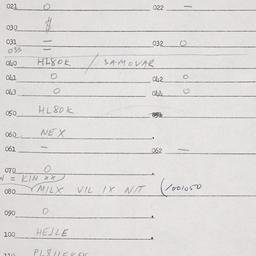 021 O 022 —
030
031 — 032 O
035 —
040 HL80K / SAMOVAR
041 O 042 O
043 O 044 O
050 HL80K
060 NEX
061 — 062 —
070 O
= KIN xx
080 MILX VIL IX NIT (/001050
090 O
100 HEJLE
110